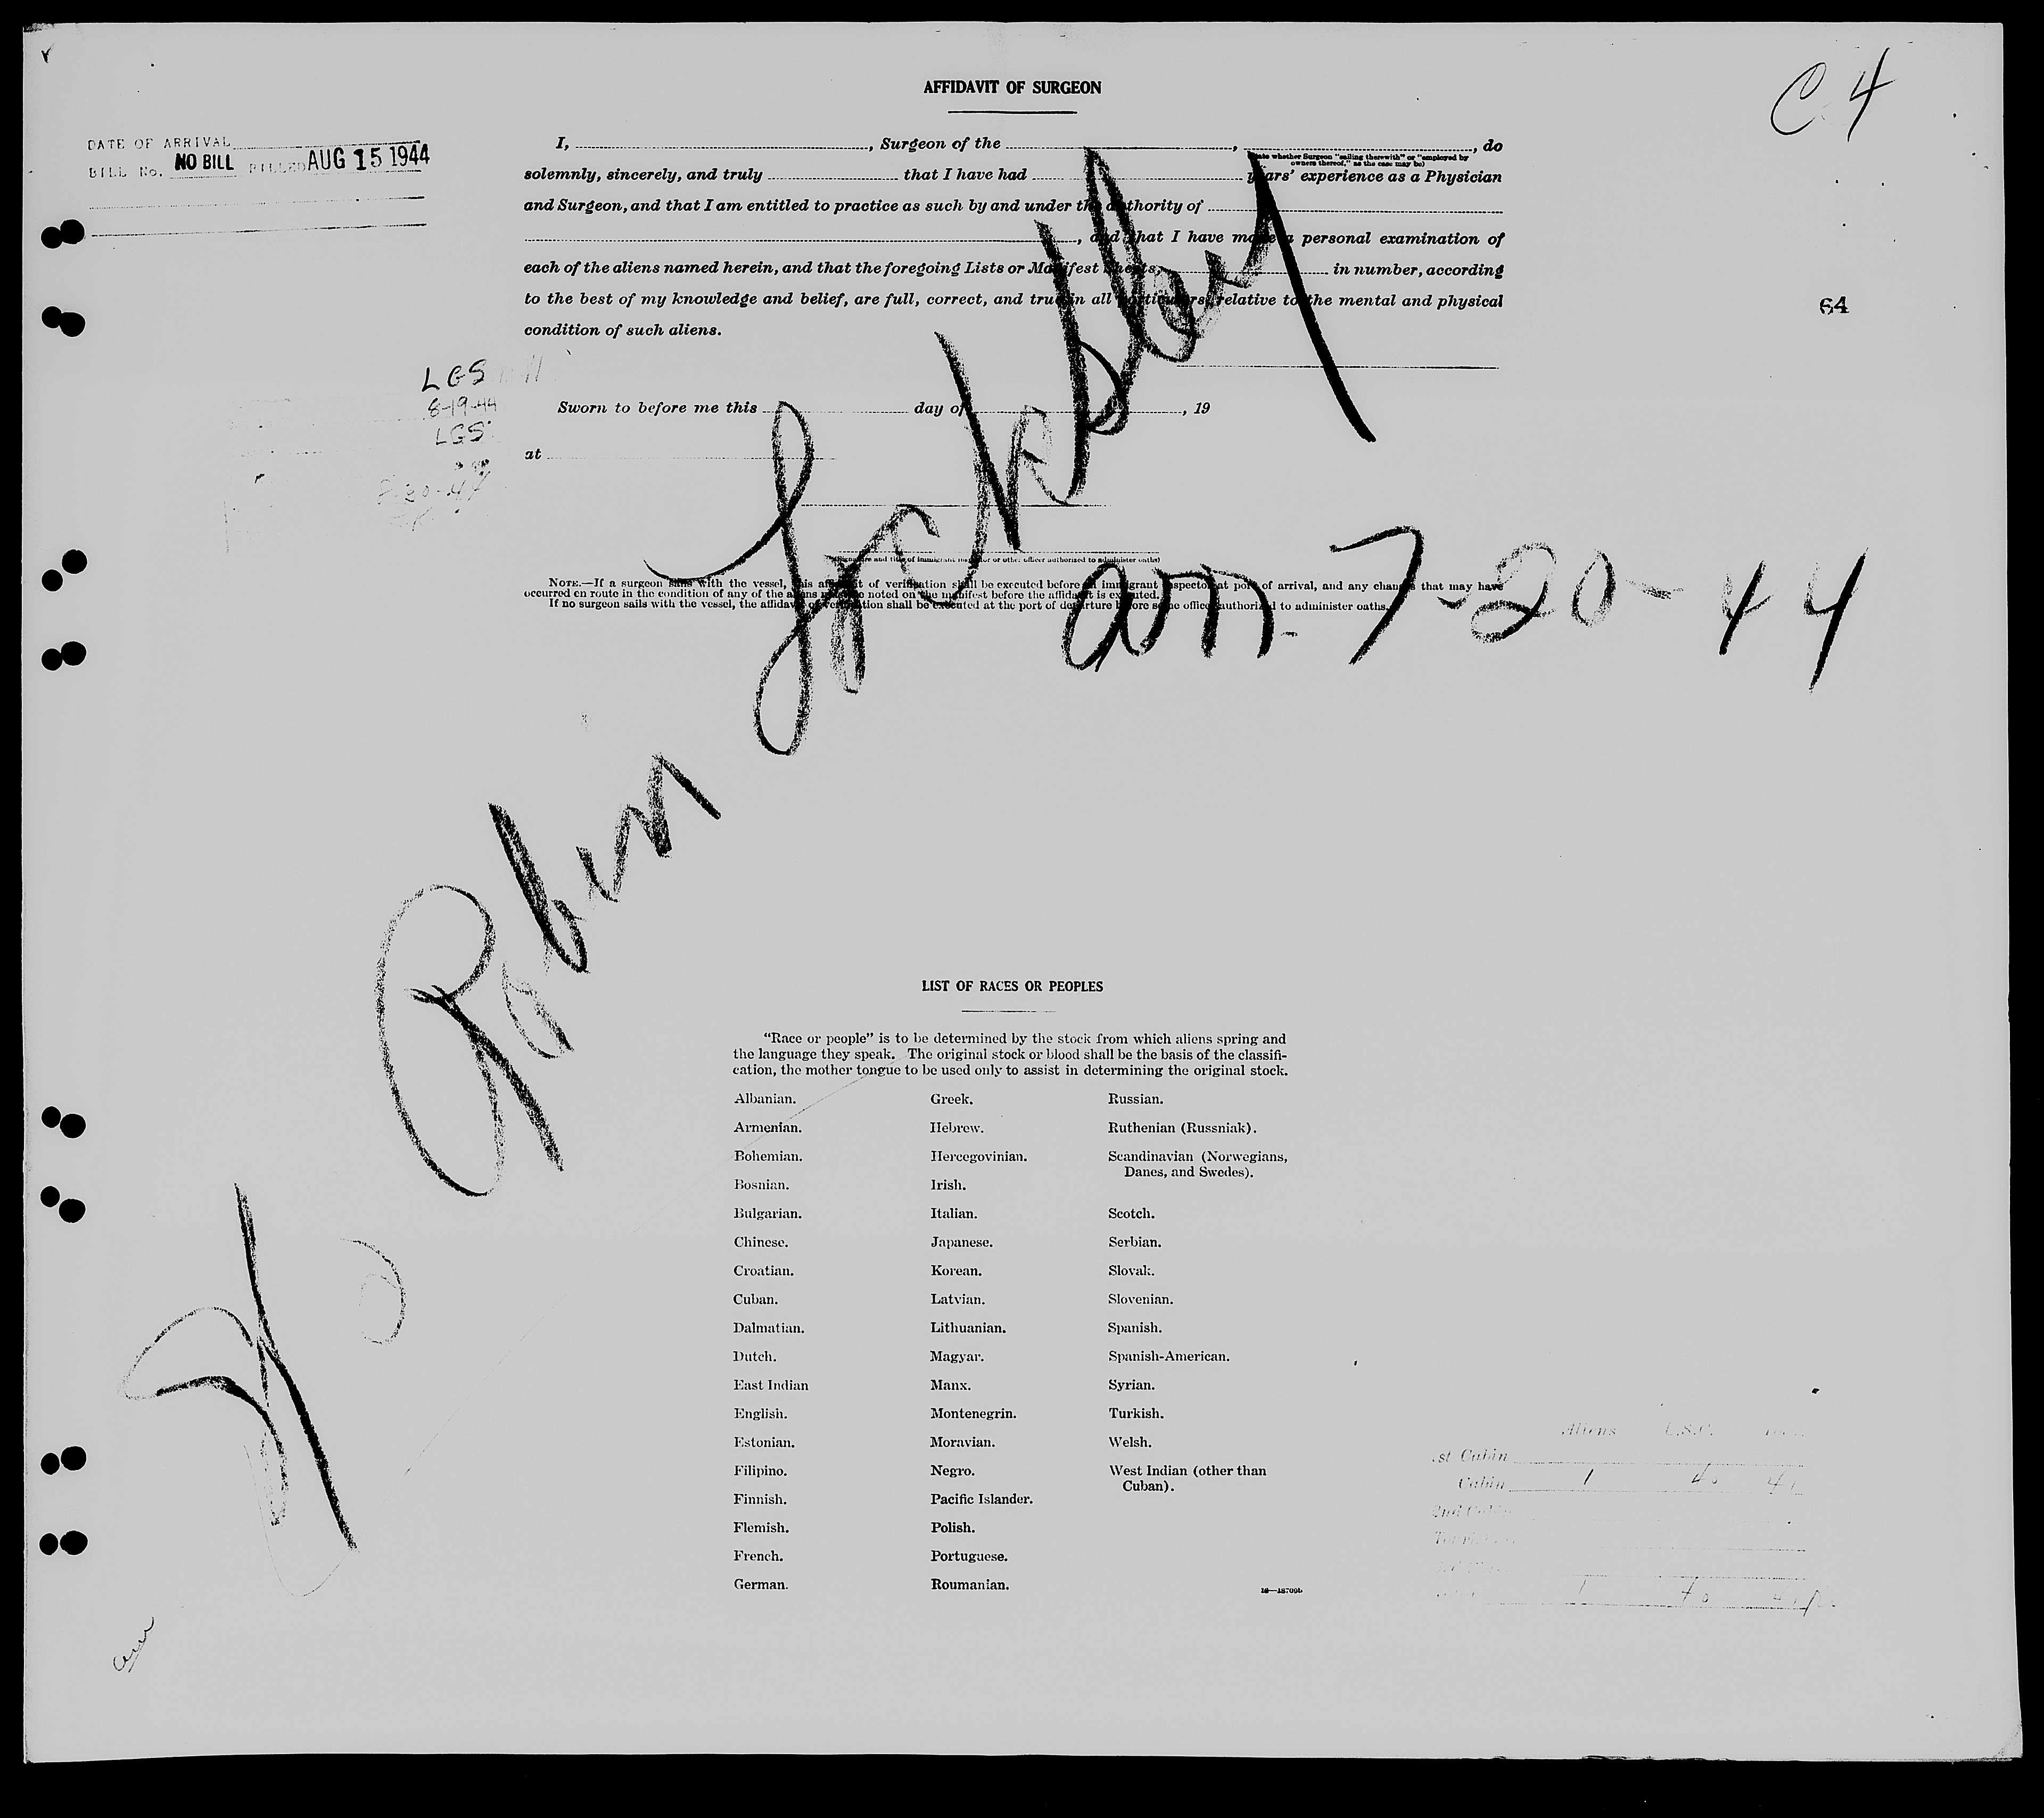 C 4
AFFIDAVIT OF SURGEON
DATE OF ARRIVAL
BILL No. NO BILL BILLED AUG 15 1944
I, , Surgeon of the , , do
(State whether Surgeon "sailing therewith" or "employed by
owners thereof," as the case may be)
solemnly, sincerely, and truly that I have had years' experience as a Physician
and Surgeon, and that I am entitled to practice as such by and under the authority of
, and that I have made a personal examination of
each of the aliens named herein, and that the foregoing Lists or Manifest Sheets, in number, according
to the best of my knowledge and belief, are full, correct, and true in all particulars, relative to the mental and physical
condition of such aliens.
64
LGS
8-19-44
LGS
Sworn to before me this day of , 19
at
(Signature and title of immigrant inspector or other officer authorized to administer oaths)
NOTE.—If a surgeon sails with the vessel, this affidavit of verification shall be executed before an immigrant inspector at port of arrival, and any changes that may have
occurred en route in the condition of any of the aliens must be noted on the manifest before the affidavit is executed.
If no surgeon sails with the vessel, the affidavit of verification shall be executed at the port of departure before some officer authorized to administer oaths.
Robin Locksley
arr. 7-20-44
LIST OF RACES OR PEOPLES
"Race or people" is to be determined by the stock from which aliens spring and
the language they speak. The original stock or blood shall be the basis of the classifi-
cation, the mother tongue to be used only to assist in determining the original stock.
Albanian. Greek. Russian.
Armenian. Hebrew. Ruthenian (Russniak).
Bohemian. Hercegovinian. Scandinavian (Norwegians,
Danes, and Swedes).
Bosnian. Irish.
Bulgarian. Italian. Scotch.
Chinese. Japanese. Serbian.
Croatian. Korean. Slovak.
Cuban. Latvian. Slovenian.
Dalmatian. Lithuanian. Spanish.
Dutch. Magyar. Spanish-American.
East Indian Manx. Syrian.
English. Montenegrin. Turkish.
Estonian. Moravian. Welsh.
Filipino. Negro. West Indian (other than
Cuban).
Finnish. Pacific Islander.
Flemish. Polish.
French. Portuguese.
German. Roumanian.
Aliens U.S.C.
1st Cabin
Cabin 1 40 41
2nd Cabin
1 40 41